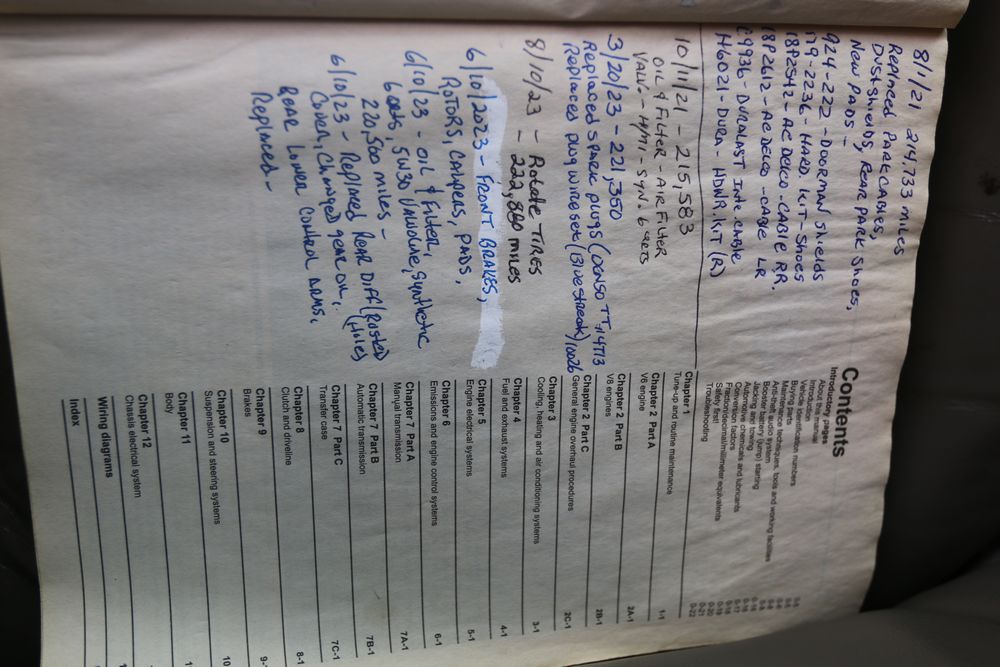 8/1/21 214,733 miles
Replaced Park Cables,
Dust shields, Rear Park Shoes,
New Pads -
924-222 - Doorman Shields
179-2236 - Hard. Kit - Shoes
18P2542 - AC Delco - Cable RR.
18P2612 - AC Delco - Cable LR
C9936 - Duralast Inte. Cable
H6021 - Dura - HDWR. Kit (R)
10/11/21 - 215,583
Oil & Filter - Air Filter
Valv. - H/M - Syn. 6 qrts
3/20/23 - 221,350
Replaced spark plugs (Denso TT,
Replaces plug wire set (Blue streak)
8/10/23 - Rotate Tires
222,860 miles
6/10/2023 - Front Brakes,
Rotors, Calipers, Pads,
6/10/23 - Oil & Filter,
6 qrts, 5W30 Valvoline, Synthetic
220,500 miles -
6/10/23 - Replaced Rear Diff (Rosted
Cover, Changed gear oil, (Hole)
Rear Lower Control Arms,
Replaced -
Contents
Introductory pages
About this manual
Introduction
Vehicle identification numbers
Buying parts
Maintenance techniques, tools and working facilities
Anti-theft audio system
Booster battery (jump) starting
Jacking and towing
Automotive chemicals and lubricants
Conversion factors
Fraction/decimal/millimeter equivalents
Safety first!
Troubleshooting
0-5
0-5
0-6
0-8
0-8
0-16
0-16
0-17
0-18
0-19
0-20
0-21
0-22
Chapter 1
Tune-up and routine maintenance 1-1
Chapter 2 Part A
V6 engine 2A-1
Chapter 2 Part B
V8 engines 2B-1
Chapter 2 Part C
General engine overhaul procedures 2C-1
Chapter 3
Cooling, heating and air conditioning systems 3-1
Chapter 4
Fuel and exhaust systems 4-1
Chapter 5
Engine electrical systems 5-1
Chapter 6
Emissions and engine control systems 6-1
Chapter 7 Part A
Manual transmission 7A-1
Chapter 7 Part B
Automatic transmission 7B-1
Chapter 7 Part C
Transfer case 7C-1
Chapter 8
Clutch and driveline 8-1
Chapter 9
Brakes 9-
Chapter 10
Suspension and steering systems 10
Chapter 11
Body 1
Chapter 12
Chassis electrical system 1
Wiring diagrams
Index